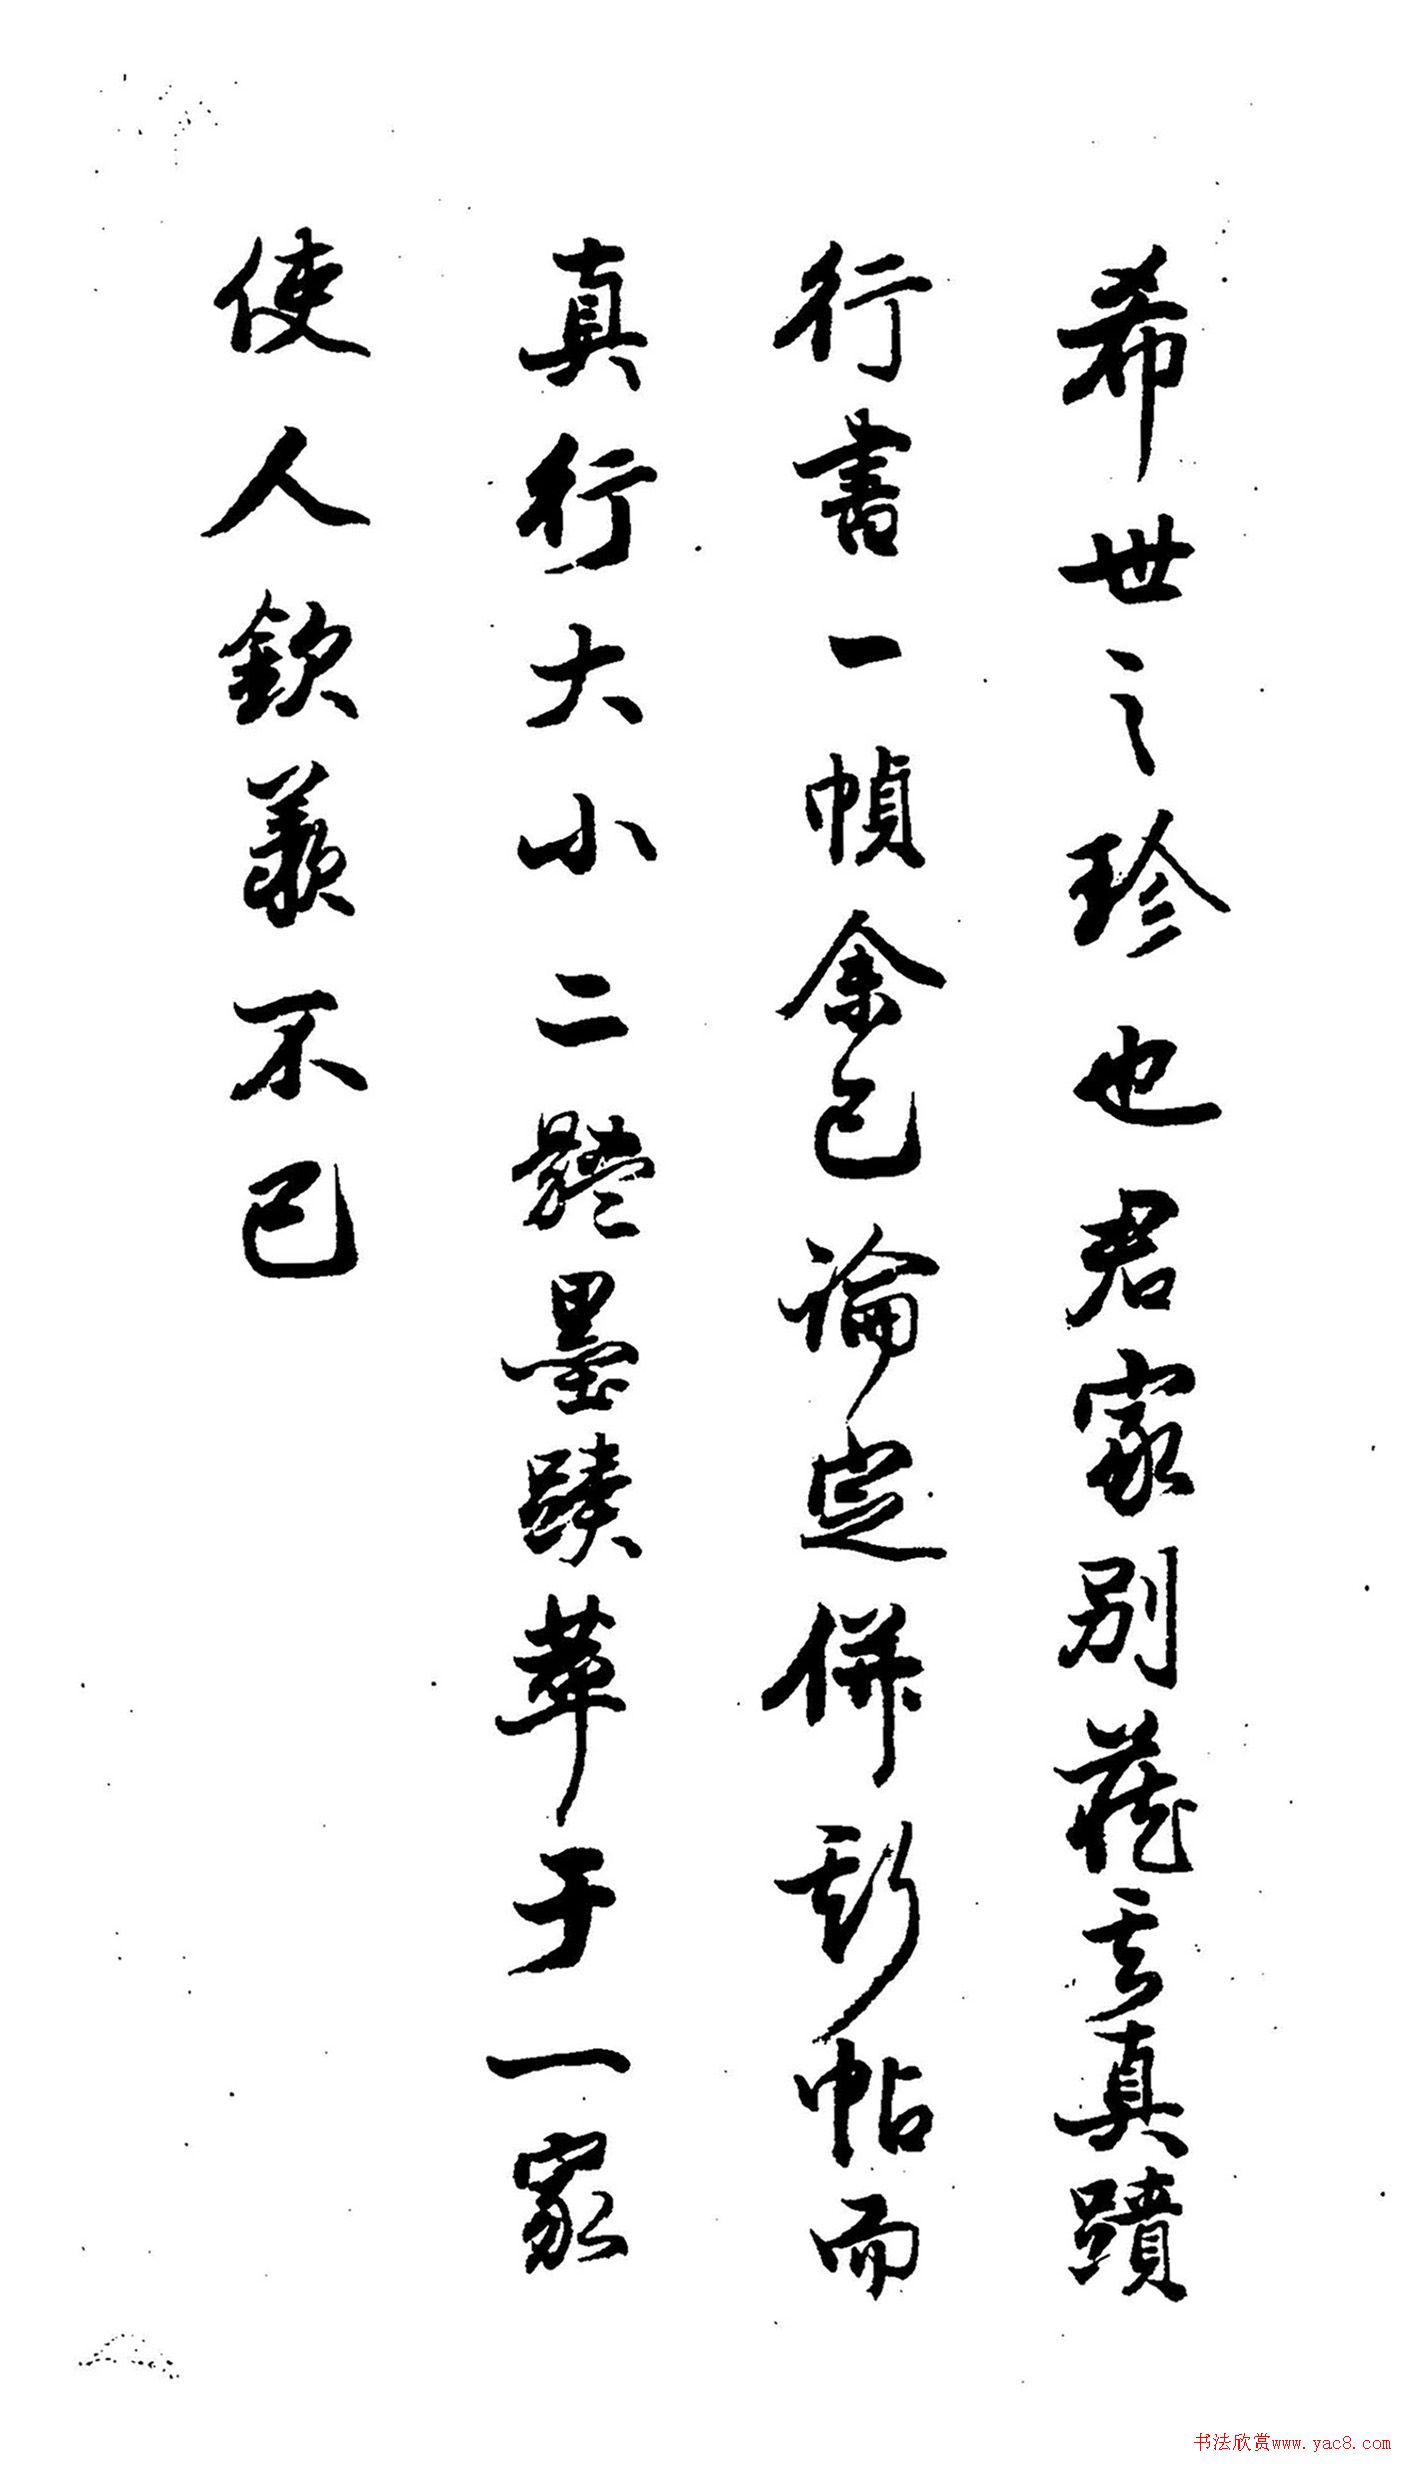 希世之珍也君家別藏玄真蹟
行書一幀余已論定併影帖而
真行大小二體墨蹟萃于一家
使人欽羨不已
书法欣赏www.yac8.com